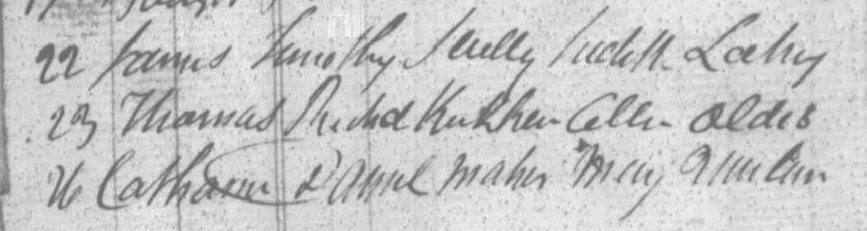 22 James Timothy Scully Judith Lahy
23 Thomas Richd Ellen
26 Catharine Daniel Maher Mary Quinlan